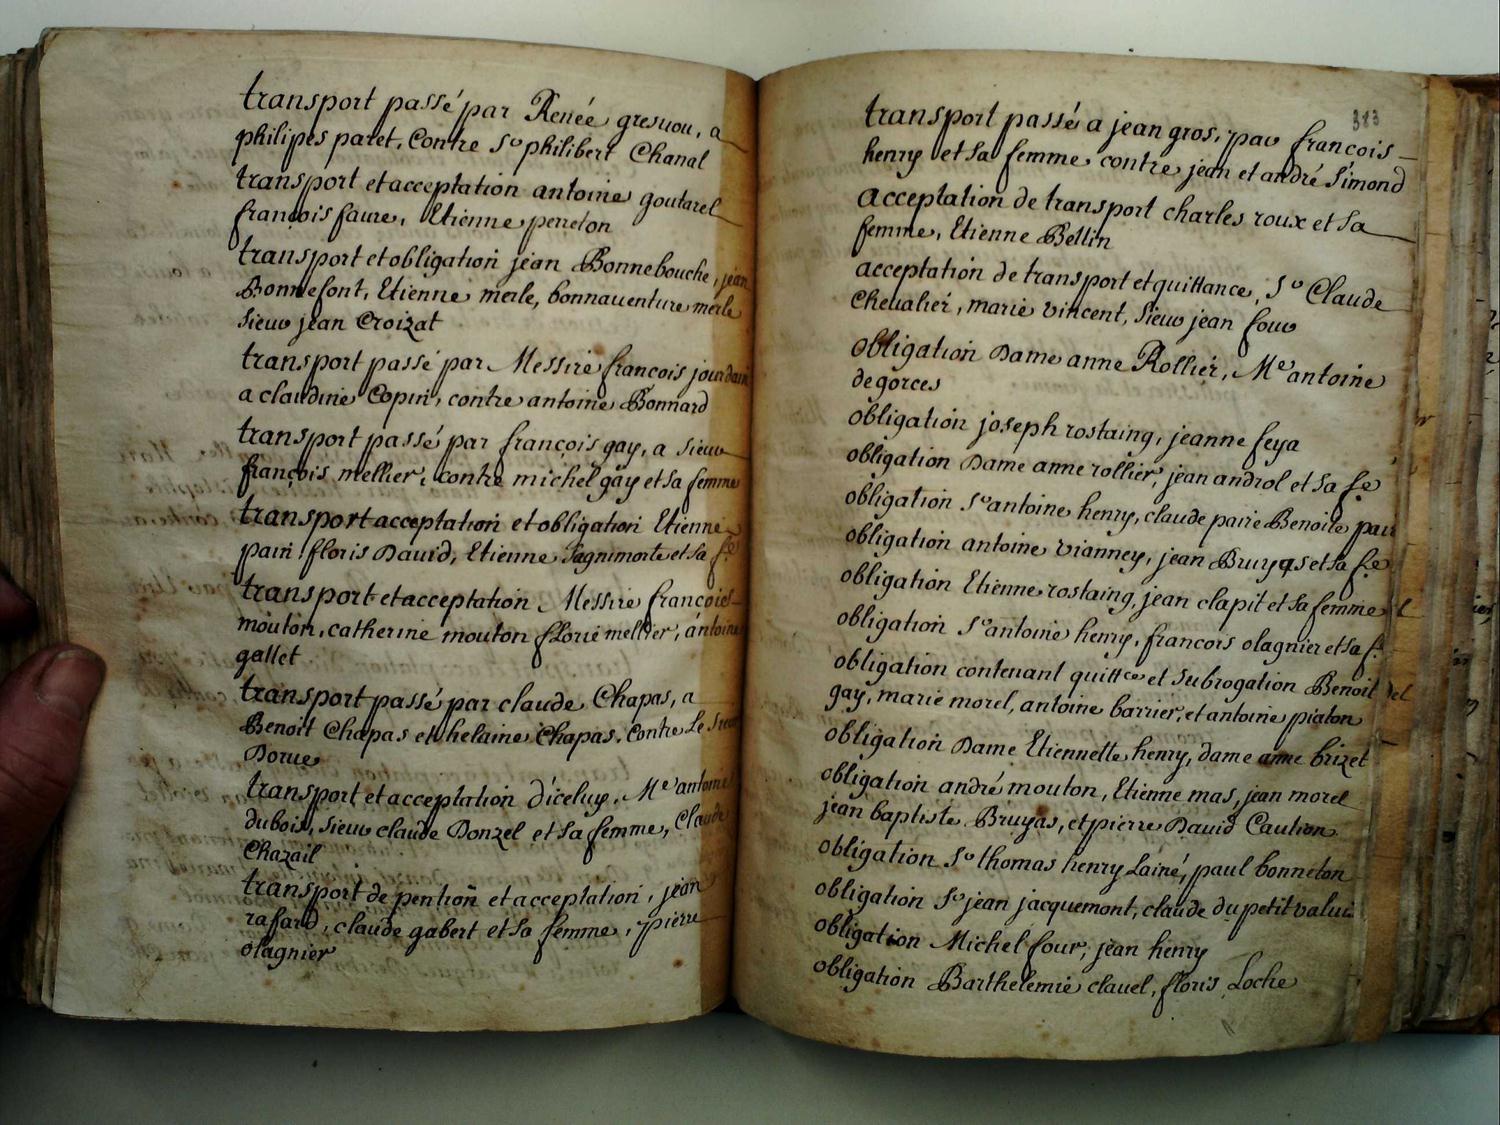 transport passé par Renée gresuou, a
philipes paret, Contre Sr philibert Chanal
transport et acceptation antoine goutarel
françois faure, Etienne peneton
transport et obligation jean Bonnebouche, jean
Bonnefont, Etienne merle, bonnauenture merle
sieur jean Croizat
transport passé par Messire francois jourdain
a claudine Copin, contre antoine Bonnard
transport passé par françois gay, a sieur
françois mellier, contre michel gay et sa femme
transport acceptation et obligation Etienne
pain floris Dauid, Etienne Sagnimorte et sa fe
transport et acceptation Messire francois
mouton, catherine mouton florie mellier, antoine
gallet
transport passé par claude Chapas, a
Benoit Chapas et helaine Chapas, contre Le Sieur
Dorue
transport et acceptation d'iceluy, Me antoine
dubois, sieur claude Donzel et sa femme, Claude
Chazail
transport de pention et acceptation, jean
raffard, claude gabert et sa femme, pierre
olagnier
383
transport passé a jean gros, par francois
henry et sa femme contre jean et andré Simond
acceptation de transport charles roux et sa
femme, Etienne Bellin
acceptation de transport et quittance, Sr Claude
Chevalier, marie vincent, sieur jean four
obligation Dame anne Rollier, Me antoine
degorces
obligation joseph rostaing, jeanne feya
obligation Dame anne rollier, jean androl et sa fe
obligation Sr antoine henry, claude paire Benoite pair
obligation antoine vianney, jean Bruyas et sa fe
obligation Etienne rostaing, jean clapit et sa femme
obligation Sr antoine henry, francois olagnier et sa f.
obligation contenant quittce et subrogation Benoit
gay, marie morel, antoine barrier, et antoine piaton
obligation Dame Etiennette henry, dame anne brizet
obligation andré mouton, Etienne mas, jean morel
jean baptiste Bruyas, et pierre Dauid Caution
obligation Sr thomas henry Lainé, paul bonneton
obligation Sr jean jacquemont, claude du petit valui
obligation Michel four, jean henry
obligation Barthelemie clauel, floris Loche